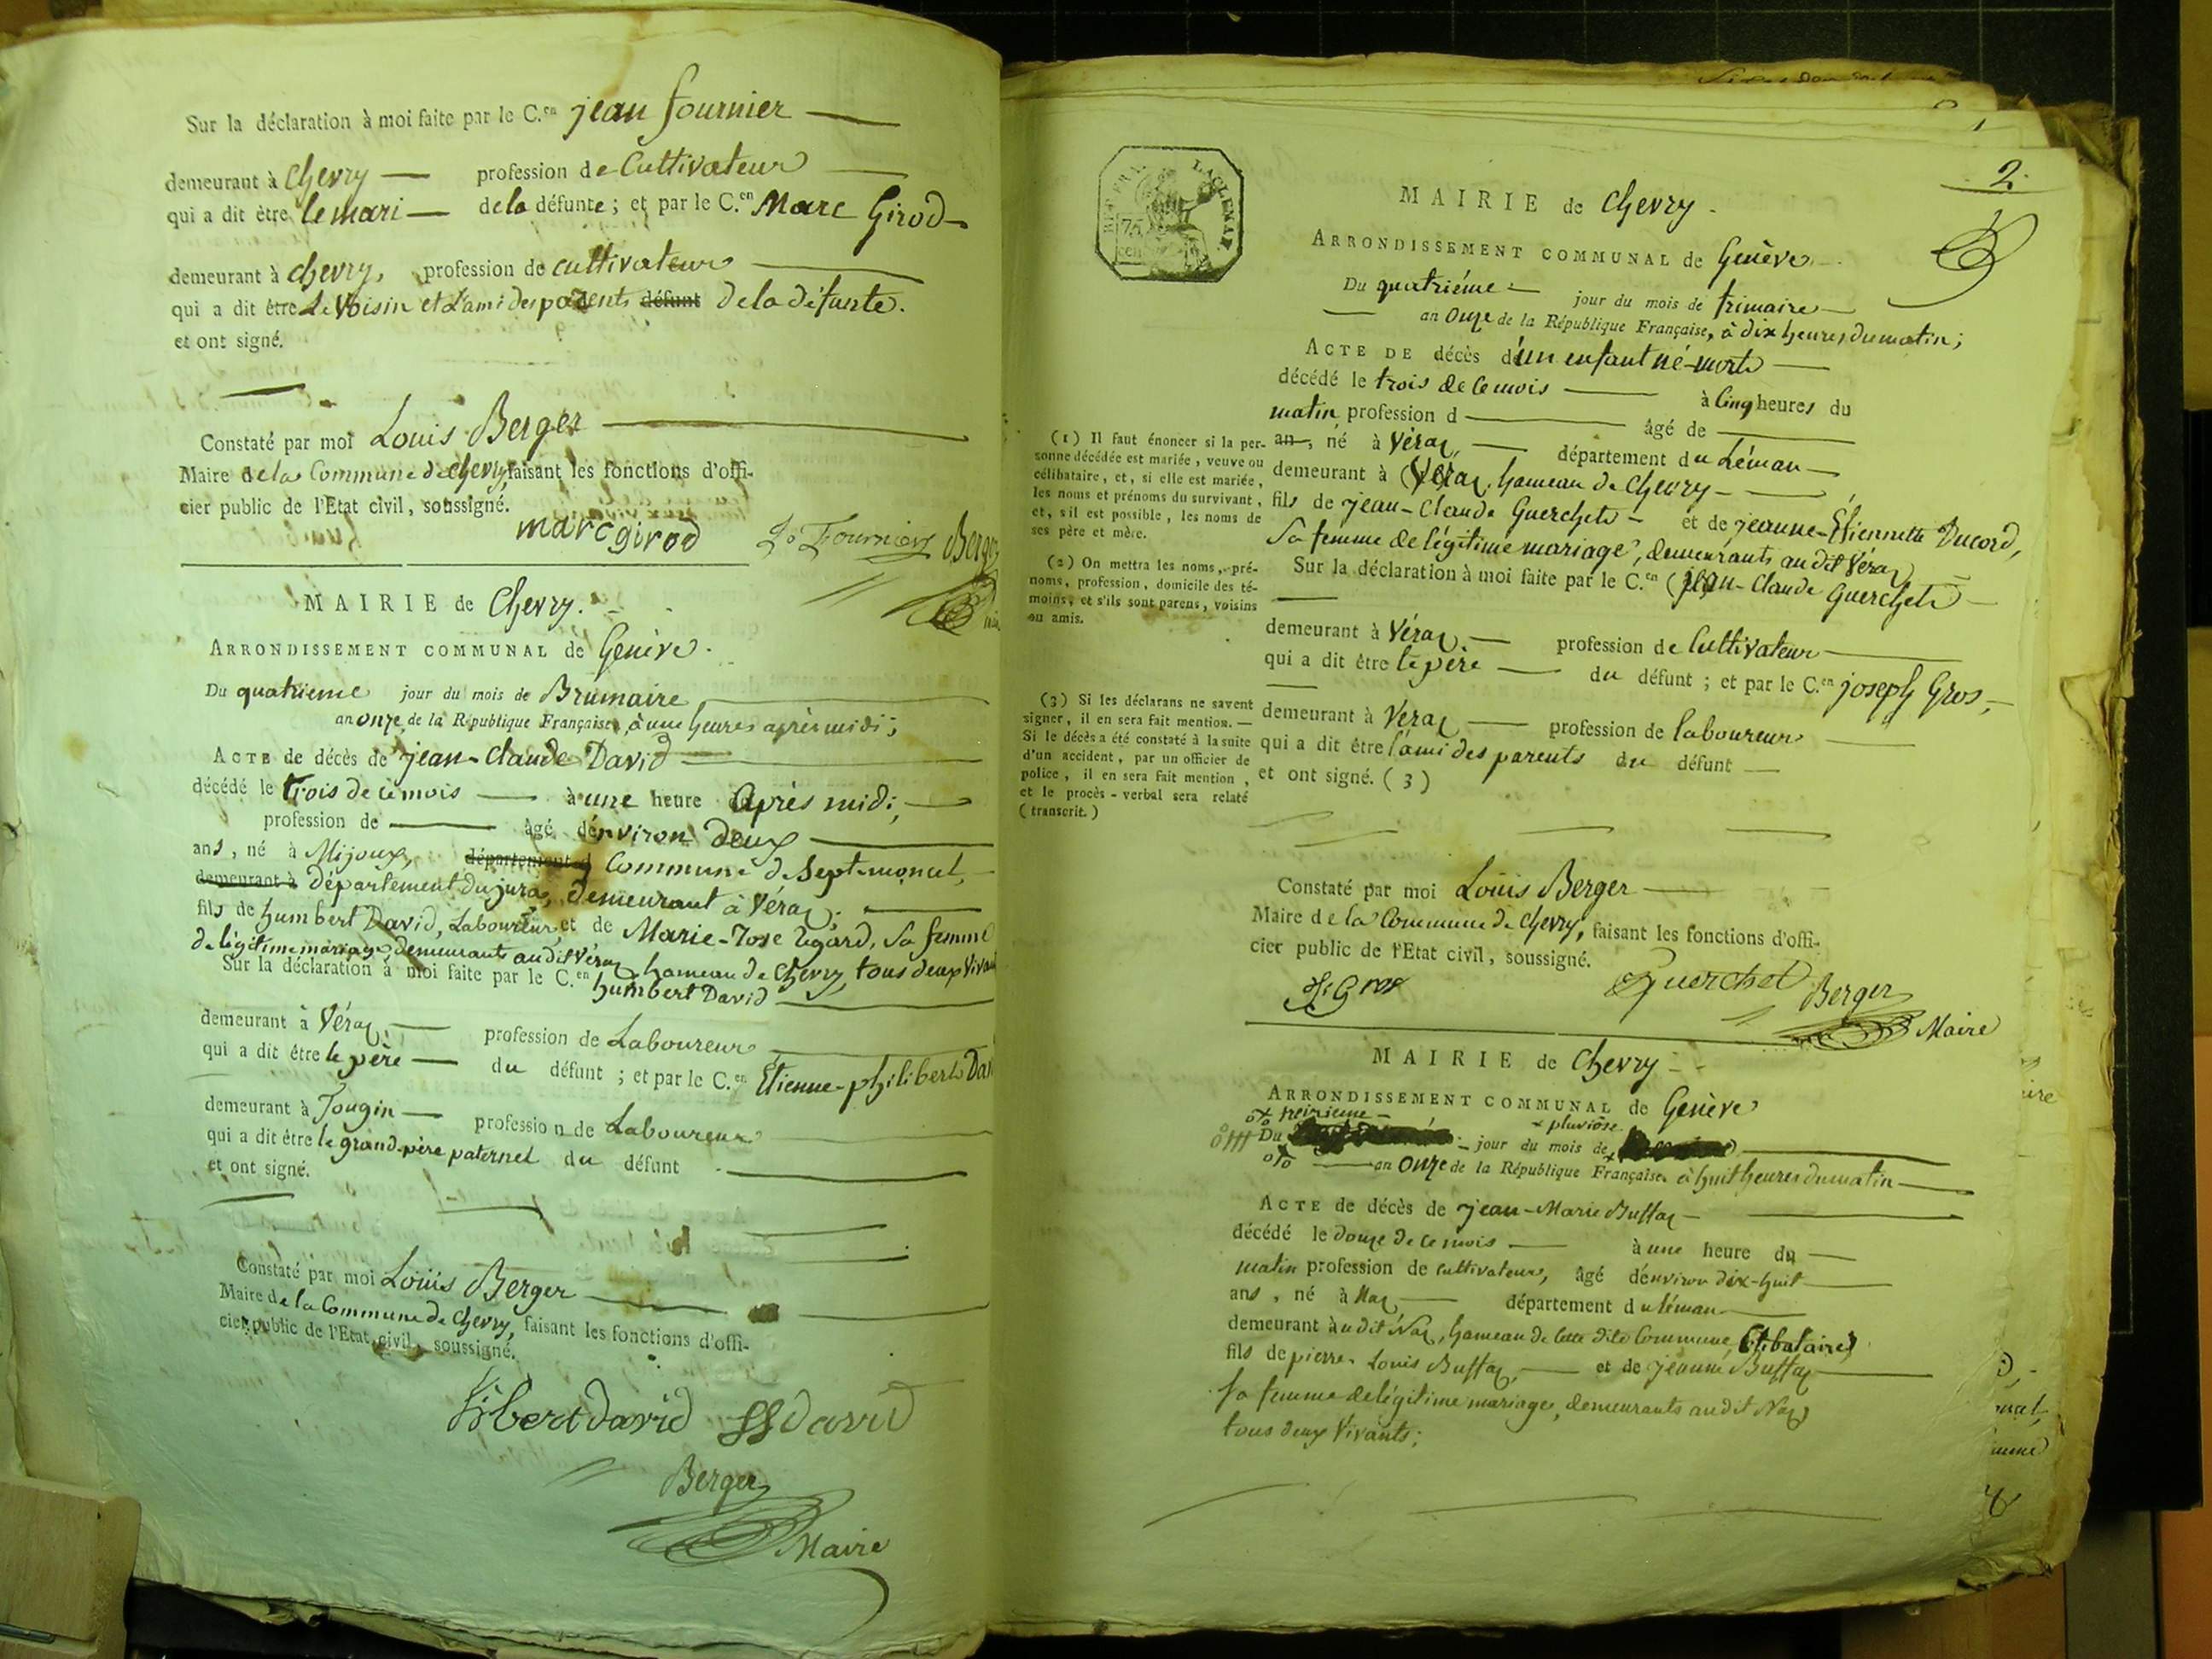 Sur la déclaration à moi faite par le C.en jean fournier
demeurant à Chevry profession de Cultivateur
qui a dit être le mari de la défunte ; et par le C.en Marc Girod
demeurant à chevry, profession de cultivateur
qui a dit être Le Voisin et L'ami des parents défunt de la défunte.
et ont signé.
Constaté par moi Louis Berger
Maire de la Commune de chevry, faisant les fonctions d'offi-
cier public de l'Etat civil, soussigné.
marc girod Fournier Berger
MAIRIE de Chevry.
ARRONDISSEMENT COMMUNAL de Genève.
Du quatrieme jour du mois de Brumaire
an onze de la République Française, à une heures après midi ;
ACTE de décès de jean-claude David
décédé le trois de ce mois à une heure après midi ,
profession de âgé d'environ deux
ans, né à Mijoux, département d Commune de Septmoncel,
demeurant à département du jura, demeurant à Véraz,
fils de humbert David, Laboureur, et de Marie-Rose Regard, Sa femme
de légitime mariage, demeurants audit Véraz, hameau de Chevry, tous deux Vivan
Sur la déclaration à moi faite par le C.en humbert David
demeurant à Véraz profession de Laboureur
qui a dit être le père du défunt ; et par le C.en Etienne-philibert Da
demeurant à Tougin profession de Laboureur
qui a dit être le grand-père paternel du défunt
et ont signé.
Constaté par moi Louis Berger
Maire de la Commune de Chevry, faisant les fonctions d'offi-
cier public de l'Etat civil, soussigné.
david david
Berger
Maire
2.
75
cen
MAIRIE de Chevry
ARRONDISSEMENT COMMUNAL de Genève
Du quatriéme jour du mois de frimaire
an Onze de la République Française, à dix heures du matin ;
ACTE DE décès d'un enfant né-mort
décédé le trois de ce mois à Cinq heures du
matin profession d âgé de
an , né à Véraz département du Léman
demeurant à Véraz, hameau de Chevry
fils de jean-Claude Guerchet et de jeanne-Etiennette Ducord,
Sa femme de légitime mariage, demeurants audit Véraz
Sur la déclaration à moi faite par le C.en jean-Claude Guerchet
demeurant à Véraz profession de Cultivateur
qui a dit être le père du défunt ; et par le C.en joseph Gros,
demeurant à Véraz profession de laboureur
qui a dit être l'ami des parents du défunt
et ont signé. (3)
(1) Il faut énoncer si la per-
sonne décédée est mariée, veuve ou
célibataire, et, si elle est mariée,
les noms et prénoms du survivant,
et, s'il est possible, les noms de
ses père et mère.
(2) On mettra les noms, pré-
noms, profession, domicile des té-
moins, et s'ils sont parens, voisins
ou amis.
(3) Si les déclarans ne savent
signer, il en sera fait mention. —
Si le décès a été constaté à la suite
d'un accident, par un officier de
police, il en sera fait mention,
et le procès-verbal sera relaté
(transcrit.)
Constaté par moi Louis Berger
Maire de la Commune de Chevry, faisant les fonctions d'offi-
cier public de l'Etat civil, soussigné.
Gros Guerchet Berger
Maire
MAIRIE de Chevry
ARRONDISSEMENT COMMUNAL de Genève
treizieme pluviôse
Du jour du mois de
an Onze de la République Française, à huit heures du matin
ACTE de décès de jean-Marie Buffaz
décédé le douze de ce mois à une heure du
matin profession de cultivateur, âgé d'environ dix-huit
ans, né à Naz département du léman
demeurant audit Naz, hameau de cette dite Commune, Célibataire
fils de pierre Louis Buffaz, et de jeanne Buffaz
Sa femme de légitime mariage, demeurants audit Naz
tous deux Vivants ;